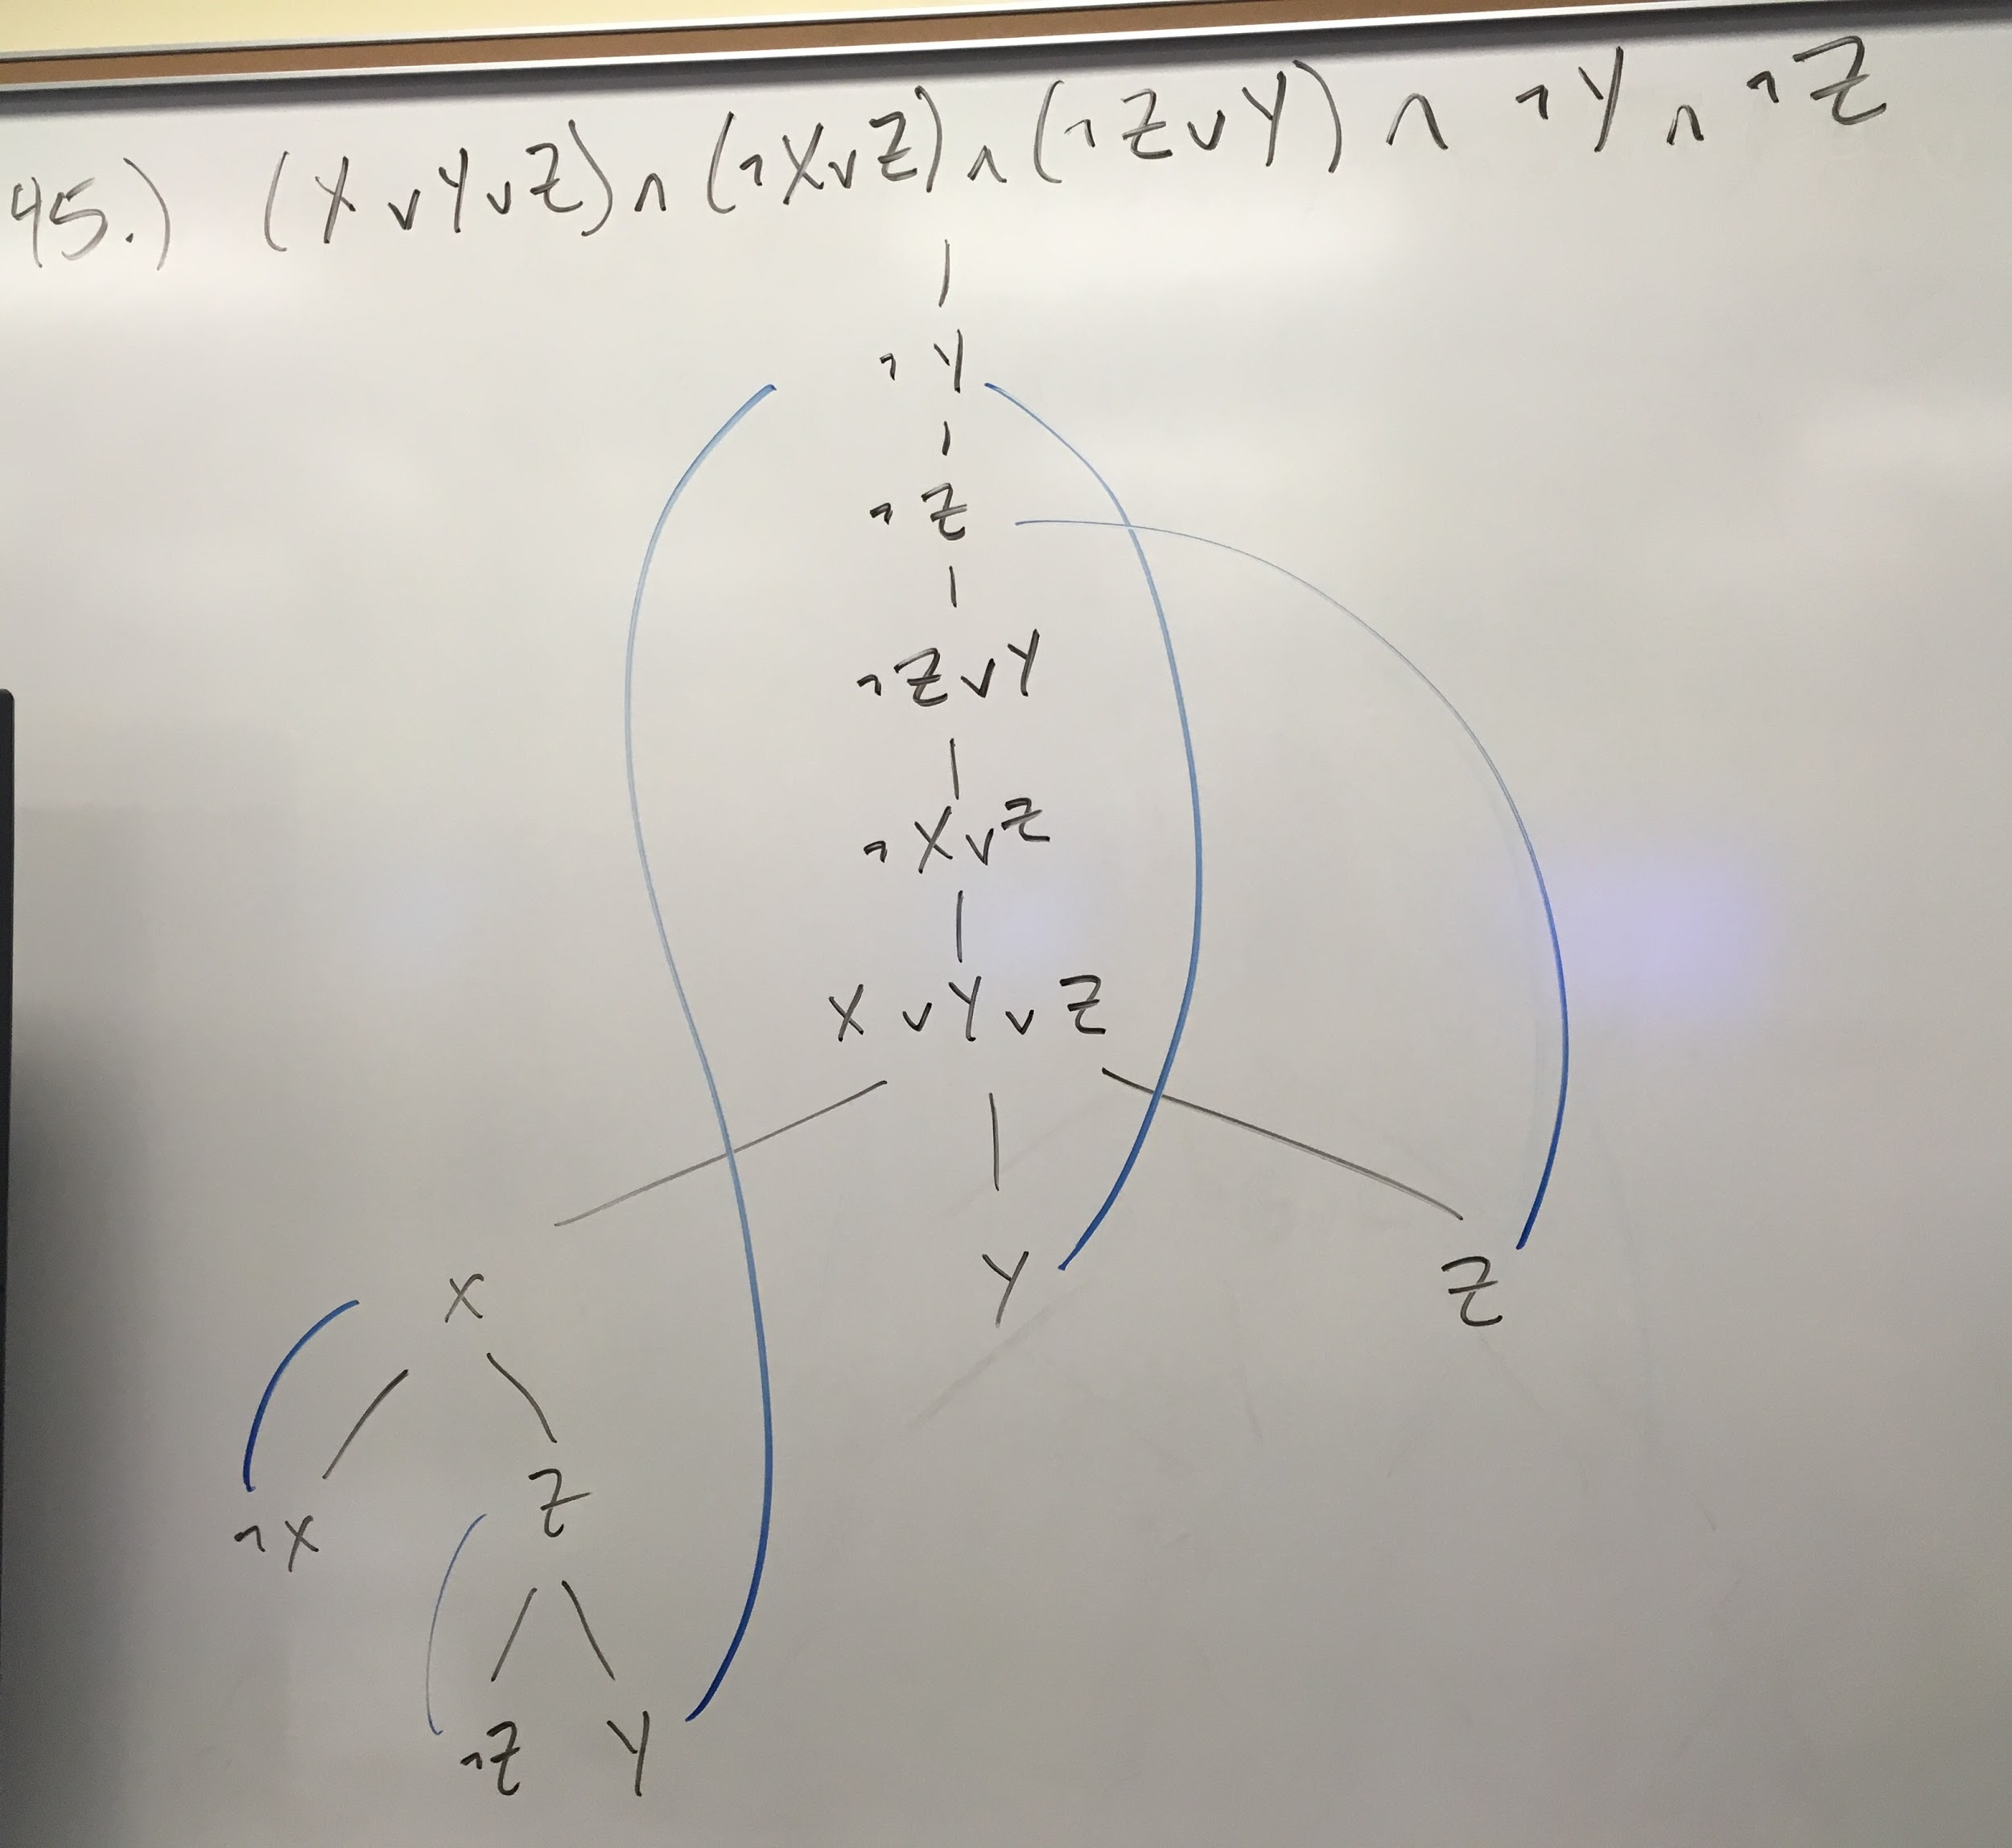 45.) (X ∨ Y ∨ Z) ∧ (¬X ∨ Z) ∧ (¬Z ∨ Y) ∧ ¬Y ∧ ¬Z
¬Y
¬Z
¬Z ∨ Y
¬X ∨ Z
X ∨ Y ∨ Z
X Y Z
¬X Z
¬Z Y